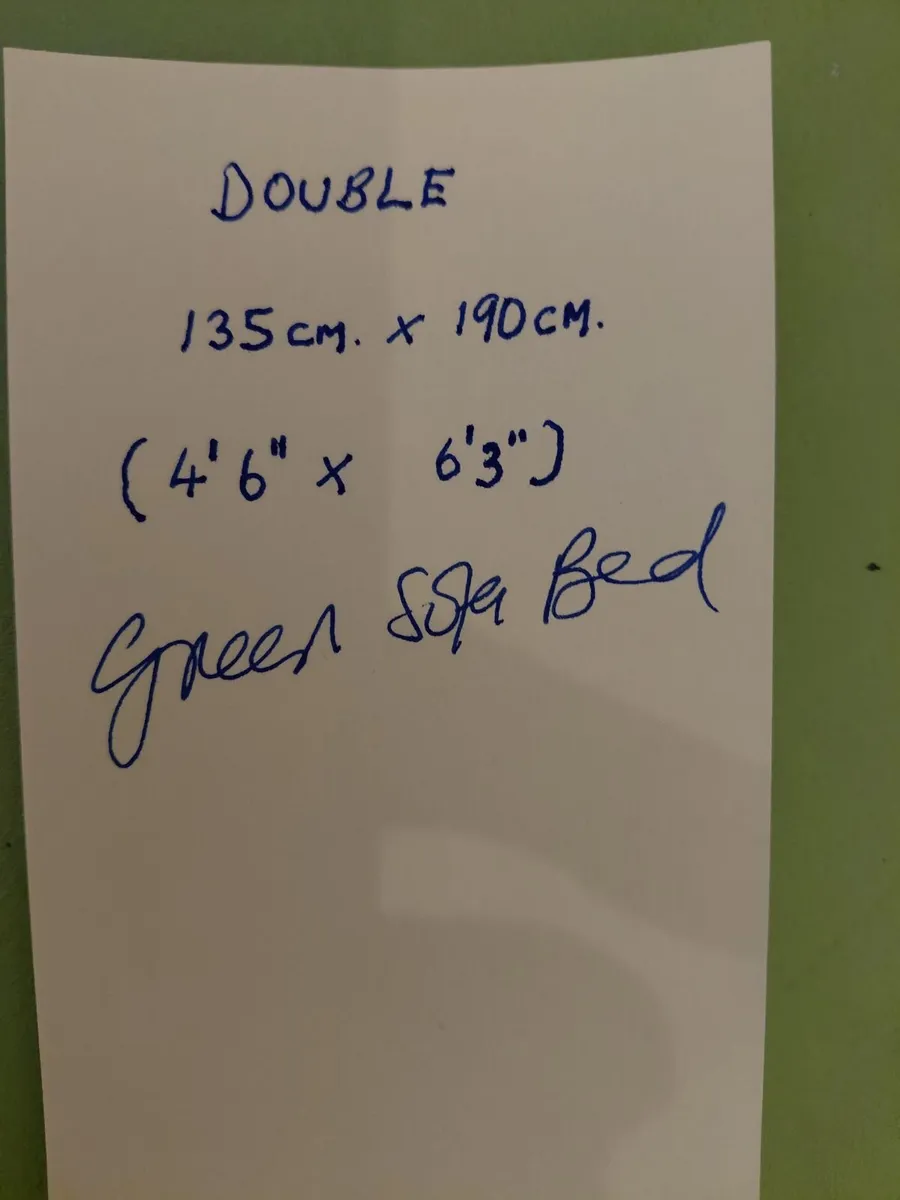 DOUBLE
135cm. x 190cm.
(4'6" x 6'3")
Green Sofa Bed